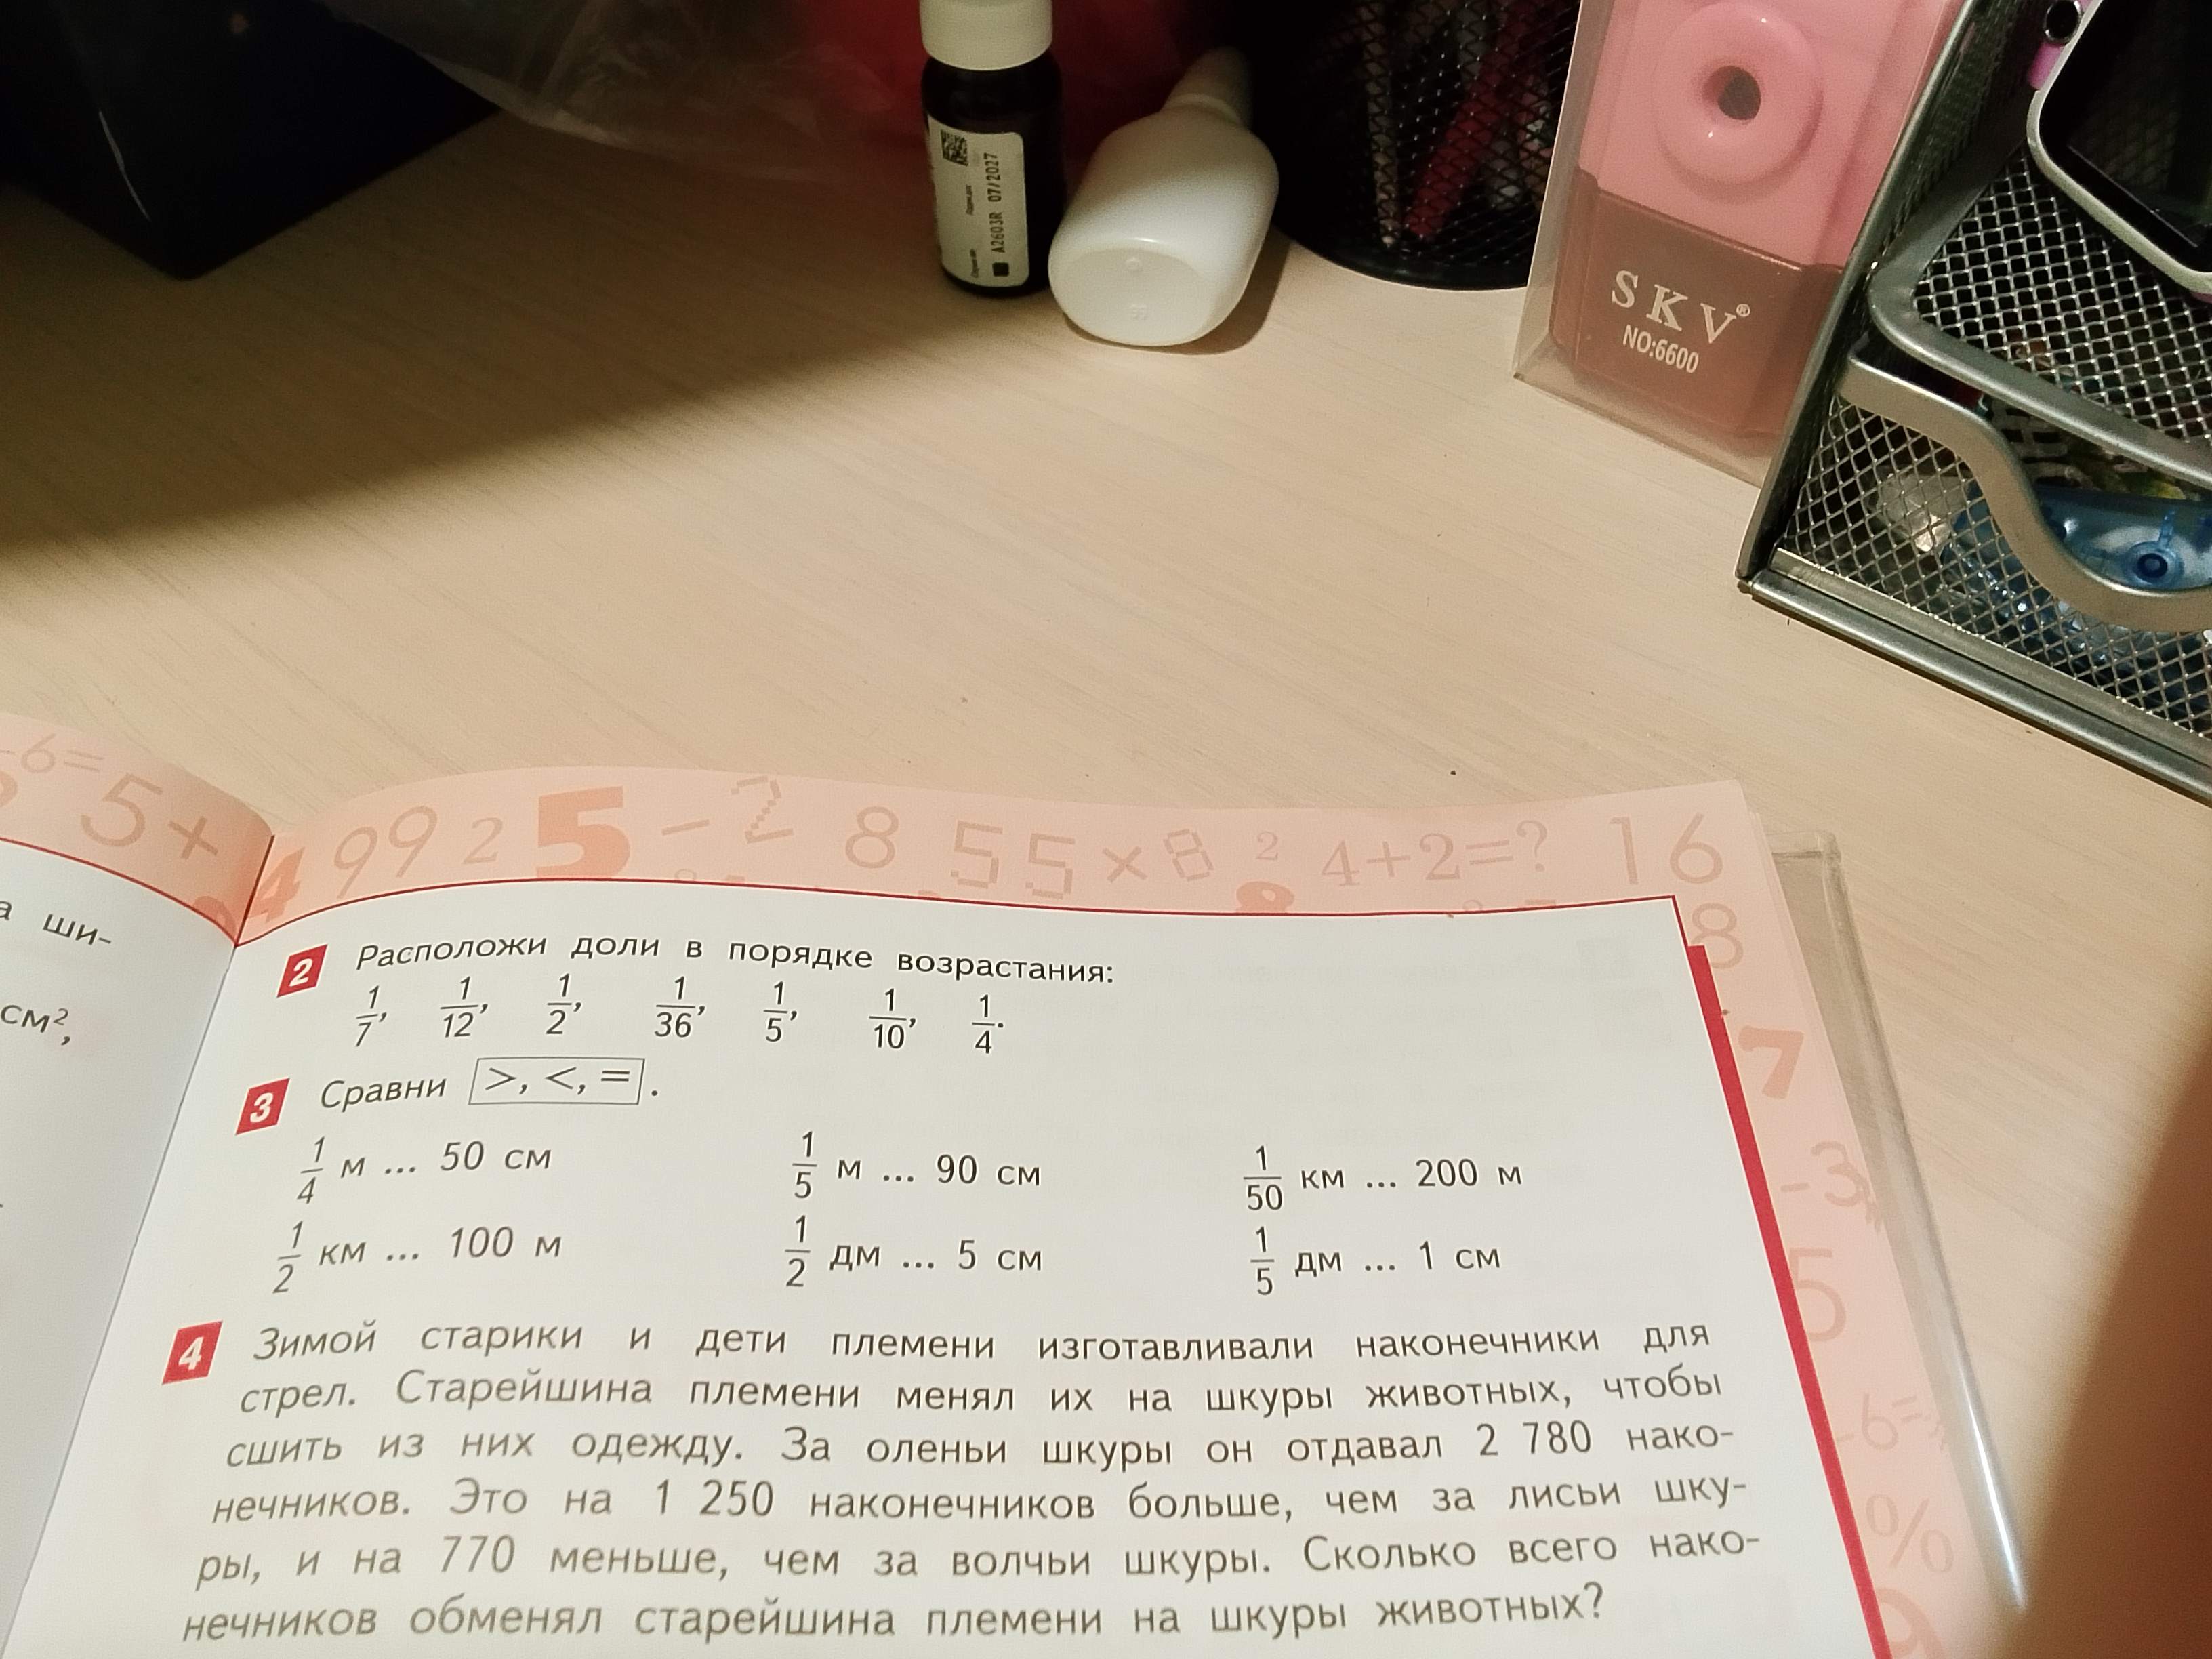 A2603R 07/2027
SKV®
NO:6600
-6=
5+
4 99 2 5 - 2 8 55×8 2 4+2=? 16
8
а ши-
см²,
2 Расположи доли в порядке возрастания:
1/7, 1/12, 1/2, 1/36, 1/5, 1/10, 1/4.
3 Сравни >, <, = .
1/4 м ... 50 см 1/5 м ... 90 см 1/50 км ... 200 м
1/2 км ... 100 м 1/2 дм ... 5 см 1/5 дм ... 1 см
4 Зимой старики и дети племени изготавливали наконечники для
стрел. Старейшина племени менял их на шкуры животных, чтобы
сшить из них одежду. За оленьи шкуры он отдавал 2 780 нако-
нечников. Это на 1 250 наконечников больше, чем за лисьи шку-
ры, и на 770 меньше, чем за волчьи шкуры. Сколько всего нако-
нечников обменял старейшина племени на шкуры животных?
7
-3
5
-6=
%
9